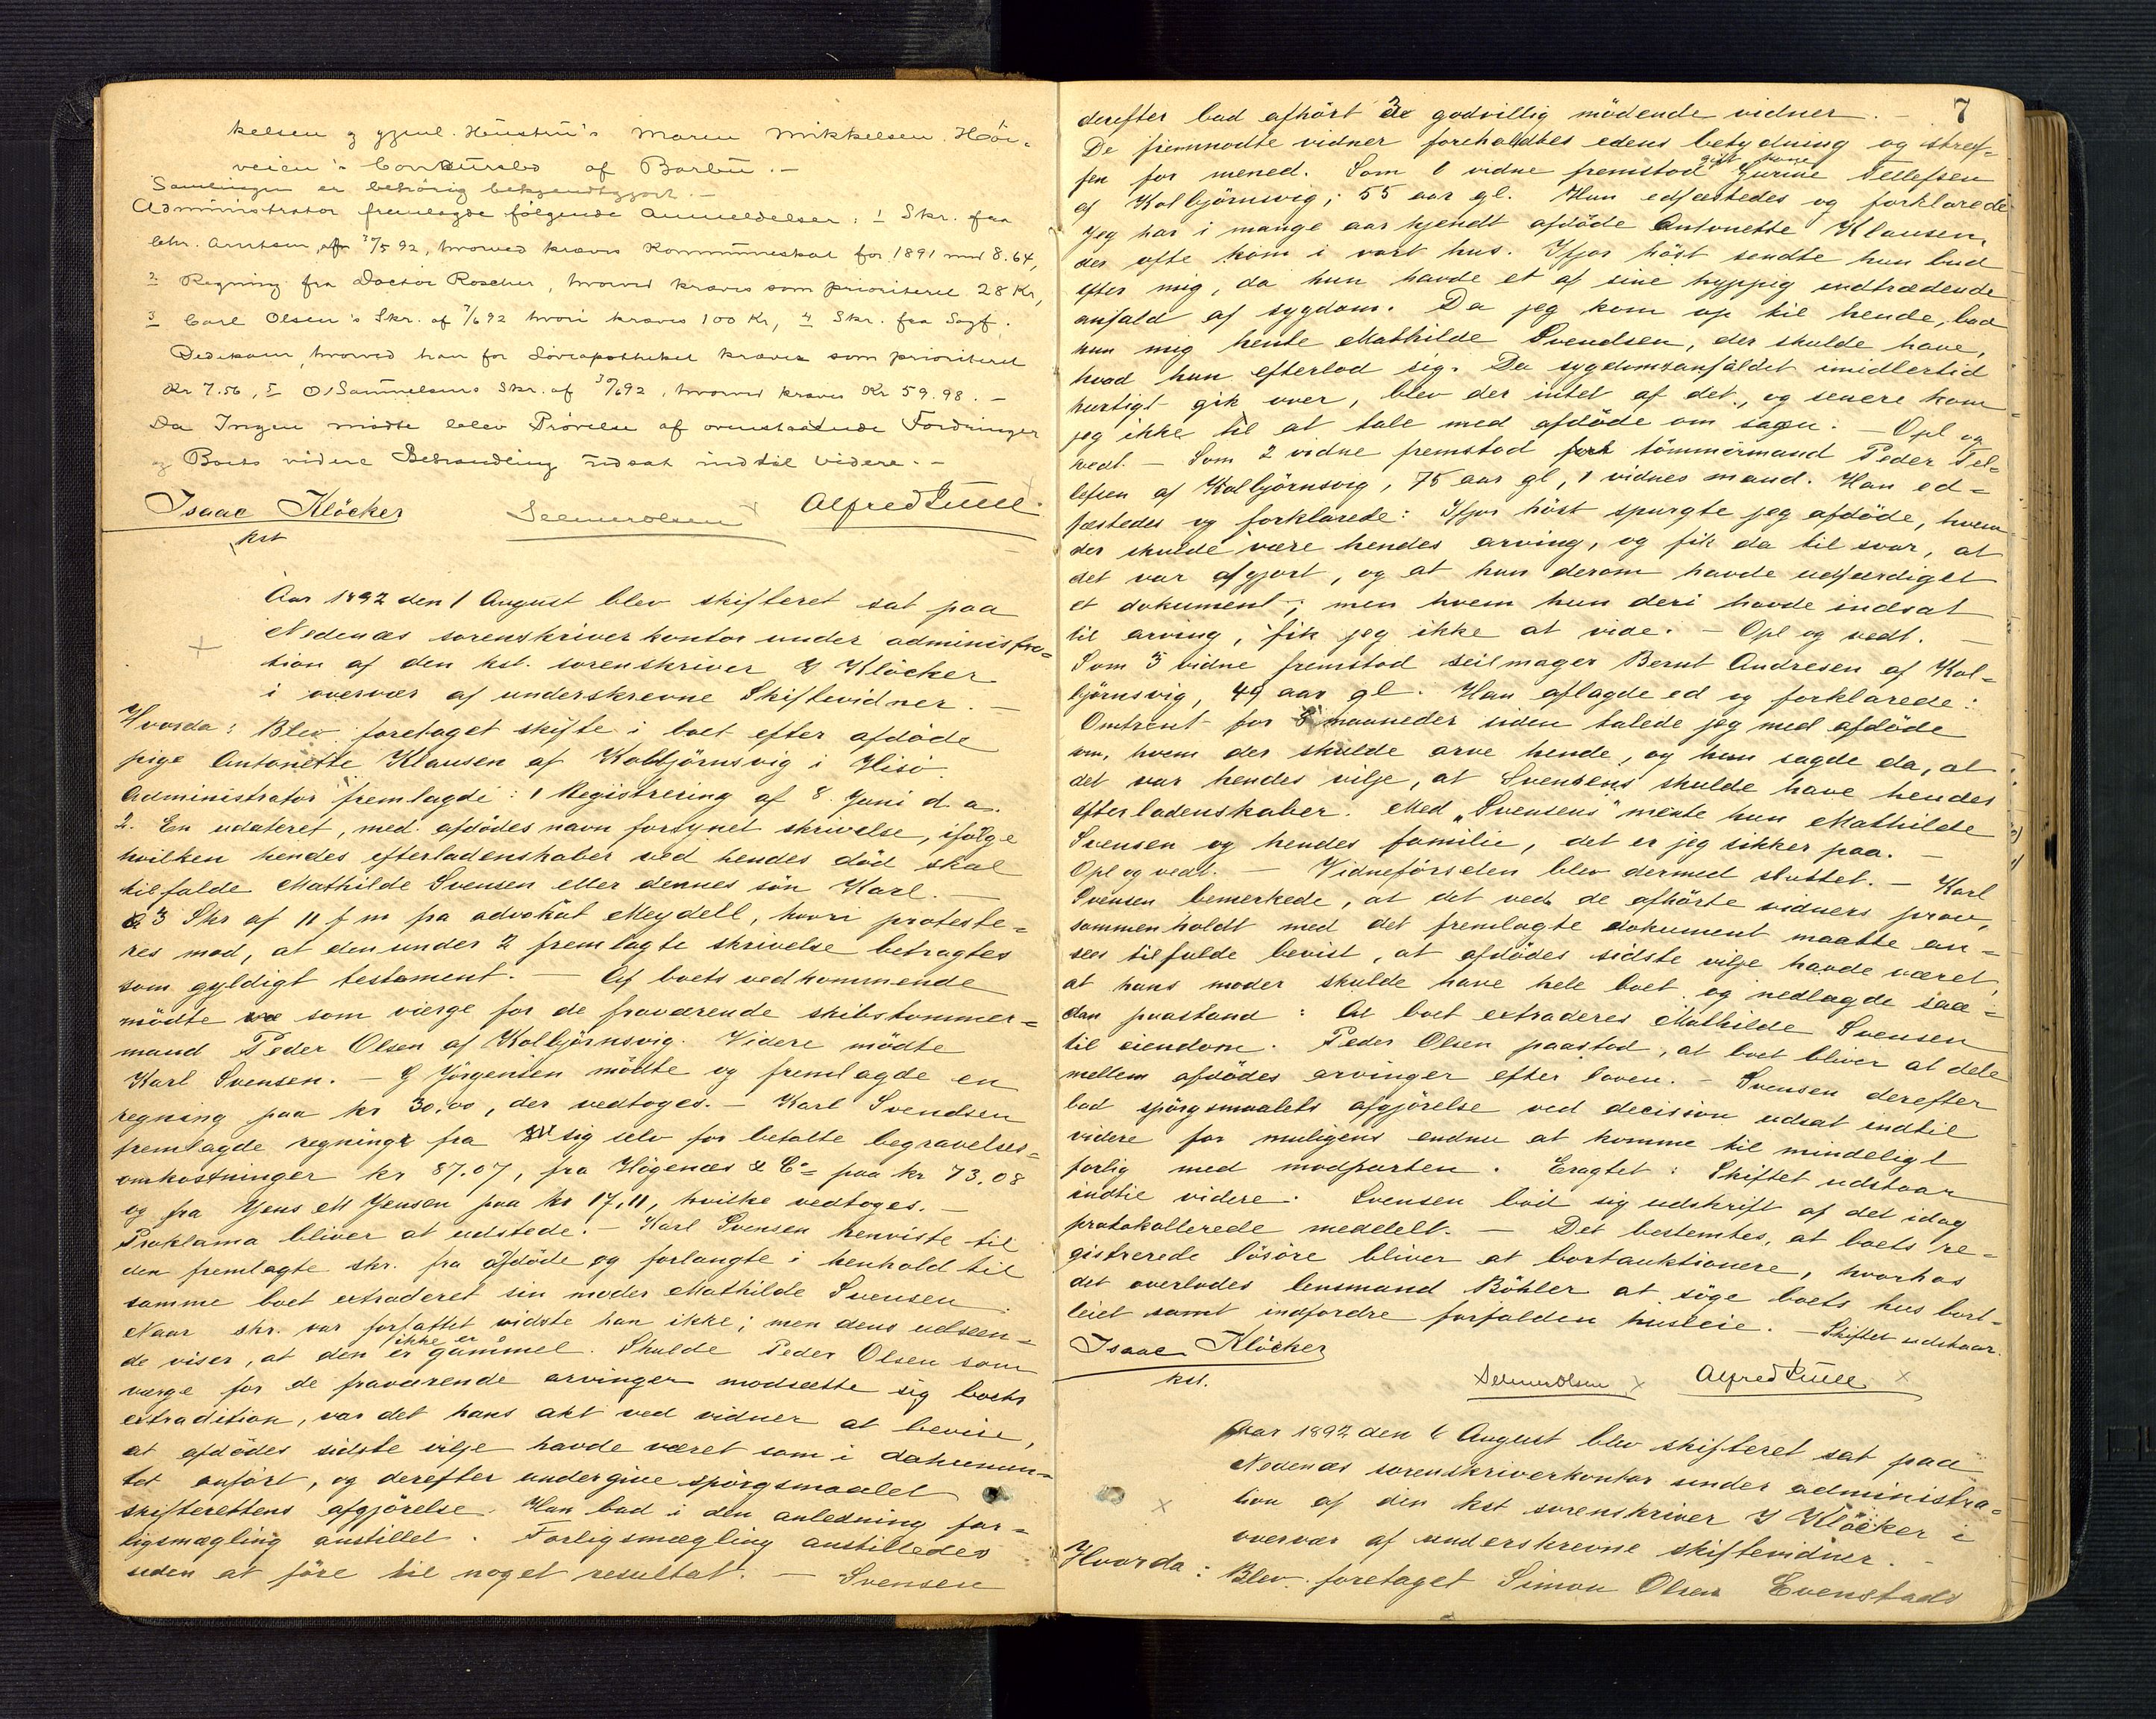 kelsen og gjenl. Hustru's Maren Mikkelsen. Höi-
veien's Concursbo af Barbu. -
Samlingen er behörig bekjendtgjort. -
Administrator fremlagde følgende Anmeldelser: 1 Skr. fra
lehr. Arntsen af 3/5 92, hvorved kræves Kommuneskat for 1891 med 8.64,
2 Regning fra Doctor Roscher, hvorved kræves som prioriteret 28 Kr,
3 Carl Olsen's Skr. af 7/6 92 hvori kræves 100 Kr, 4 Skr. fra Sagf.
Dedekam, hvorved han for Løveapotheket kræves som prioriteret
Kr 7.56, 5 O Samuelsens Skr. af 3/6 92, hvorved kræves Kr 59.98. -
Da Ingen mødte blev Prøvelse af ovenstaaende Fordringer
og Boets videre Behandling udsat indtil videre. -
Isaac Klöcker
kst
Selmer Olsen
Alfred Juell
Aar 1892 den 1 August blev skifteret sat paa
Nedenæs sorenskriverkontor under administra-
tion af den kst. sorenskriver I Klöcker
i overvær af underskrevne Skiftevidner. -
Hvorda: Blev foretaget skifte i boet efter afdöde
pige Antonette Klausen af Kolbjörnsvig i Hisö.
Administrator fremlagde: 1 Registrering af 8. Juni d. a.
2. En udateret, med afdödes navn forsynet skrivelse, ifölge
hvilken hendes efterladenskaber ved hendes död skal
tilfalde Mathilde Svensen eller dennes sön Karl. -
3 Skr af 11 f m fra advokat Meydell, hvori proteste-
res mod, at den under 2 fremlagte skrivelse betragtes
som gyldigt testament. - Af boets vedkommende
mödte som værge for de fraværende skibstömmer-
mand Peder Olsen af Kolbjörnsvig. Videre mödte
Karl Svensen. - G Jörgensen mödte og fremlagde en
regning paa kr 30,00, der vedtoges. - Karl Svendsen
fremlagde regninger fra sig selv for betalte begravelses-
omkostninger kr 87.07, fra Högenæs & Co paa kr 73.08
og fra Jens M Jensen paa kr 17,11, hvilke vedtoges. -
Proklama bliver at udstede. - Karl Svensen henviste til
den fremlagte skr. fra afdöde og forlangte i henhold til
samme boet extraderet sin moder Mathilde Svensen.
Naar skr. var forfattet vidste han ikke; men dens udseen-
de viser, at den ikke er gammel. Skulde Peder Olsen som
værge for de fraværende arvinger modsætte sig boets
extradition, var det hans akt ved vidner at bevise,
at afdödes sidste vilje havde været som i dokumen-
tet anfört, og derefter undergive spörgsmaalet
skifterettens afgjörelse. Han bad i den anledning for-
ligsmægling anstillet. Forligsmægling anstilledes
uden at före til noget resultat. - Svensen
7
derefter bad afhört 3 godvillig mödende vidner. -
De fremmödte vidner foreholdtes edens betydning og straf-
fen for mened. Som 1 vidne fremstod gift kone Gurine Tellefsen
af Kolbjörnsvig; 55 aar gl. Hun edfæstedes og forklarede
Jeg har i mange aar kjendt afdöde Antonette Klausen,
der ofte kom i vort hus. Ifjor höst sendte hun bud
efter mig, da hun havde et af sine hyppig indtrædende
anfald af sygdom. Da jeg kom op til hende, bad
hun mig hente Mathilde Svendsen, der skulde have,
hvad hun efterlod sig. Da sygdomsanfaldet imidlertid
hurtigt gik over, blev der intet af det, og senere kom
jeg ikke til at tale med afdöde om sagen. - Opl og
vedt. - Som 2 vidne fremstod tömmermand Peder Tel-
lefsen af Kolbjörnsvig, 75 aar gl, 1 vidnes mand. Han ed-
fæstedes og forklarede: Ifjor höst spurgte jeg afdöde, hvem
der skulde være hendes arving, og fik da til svar, at
det var afgjort, og at hun derom havde udfærdiget
et dokument; men hvem hun deri havde indsat
til arving, fik jeg ikke at vide. - Opl og vedt. -
Som 3 vidne fremstod seilmager Bernt Andresen af Kol-
björnsvig, 49 aar gl. Han aflagde ed og forklarede:
Omtrent for 8 maaneder siden talede jeg med afdöde
om, hvem der skulde arve hende, og hun sagde da, at
det var hendes vilje, at Svensens skulde have hendes
efterladenskaber. Med „Svensens" mente hun Mathilde
Svensen og hendes familie, det er jeg sikker paa. -
Opl og vedt. - Vidneförselen blev dermed sluttet. - Karl
Svensen bemerkede, at det ved de afhörte vidners prov,
sammenholdt med det fremlagte dokument maatte an-
sees tilfulde bevist, at afdödes sidste vilje havde været,
at hans moder skulde have hele boet og nedlagde saa-
dan paastand: At boet extraderes Mathilde Svensen
til eiendom. Peder Olsen paastod, at boet bliver at dele
mellem afdödes arvinger efter loven. - Svensen derefter
bad spörgsmaalets afgjörelse ved decision udsat indtil
videre for muligens endnu at komme til mindeligt
forlig med modparten. Eragtet: Skiftet udstaar
indtil videre. Svensen bad sig udskrift af det idag
protokollerede meddelt. - Det bestemtes, at boets re-
gistrerede lösöre bliver at bortauktionere, hvorhos
det overlodes lensmand Böhler at söge boets hus bort-
leiet samt indfordre forfalden husleie. - Skiftet udstaar.
Isaac Klöcker
kst.
Selmer Olsen
Alfred Juell
Aar 1892 den 6 August blev skifteret sat paa
Nedenæs sorenskriverkontor under administra-
tion af den kst sorenskriver I Klöcker i
overvær af underskrevne skiftevidner. -
Hvorda: Blev foretaget Simon Olsen Evenstads